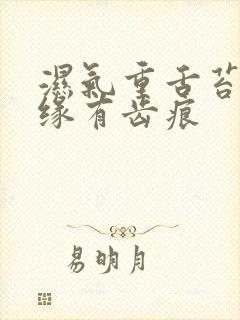 濕氣重舌苔
缘有齿痕
易明月